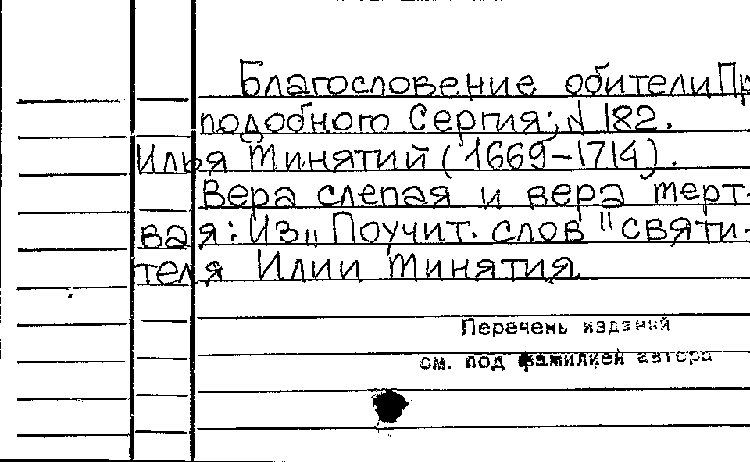 Благословение обители Пр
подобного Сергия; N 182.
Илья Минятий (1669-1714).
Вера слепая и вера мерт-
вая: Из „Поучит. слов" святи-
теля Илии Минятия
Перечень изданий
см. под фамилией автора